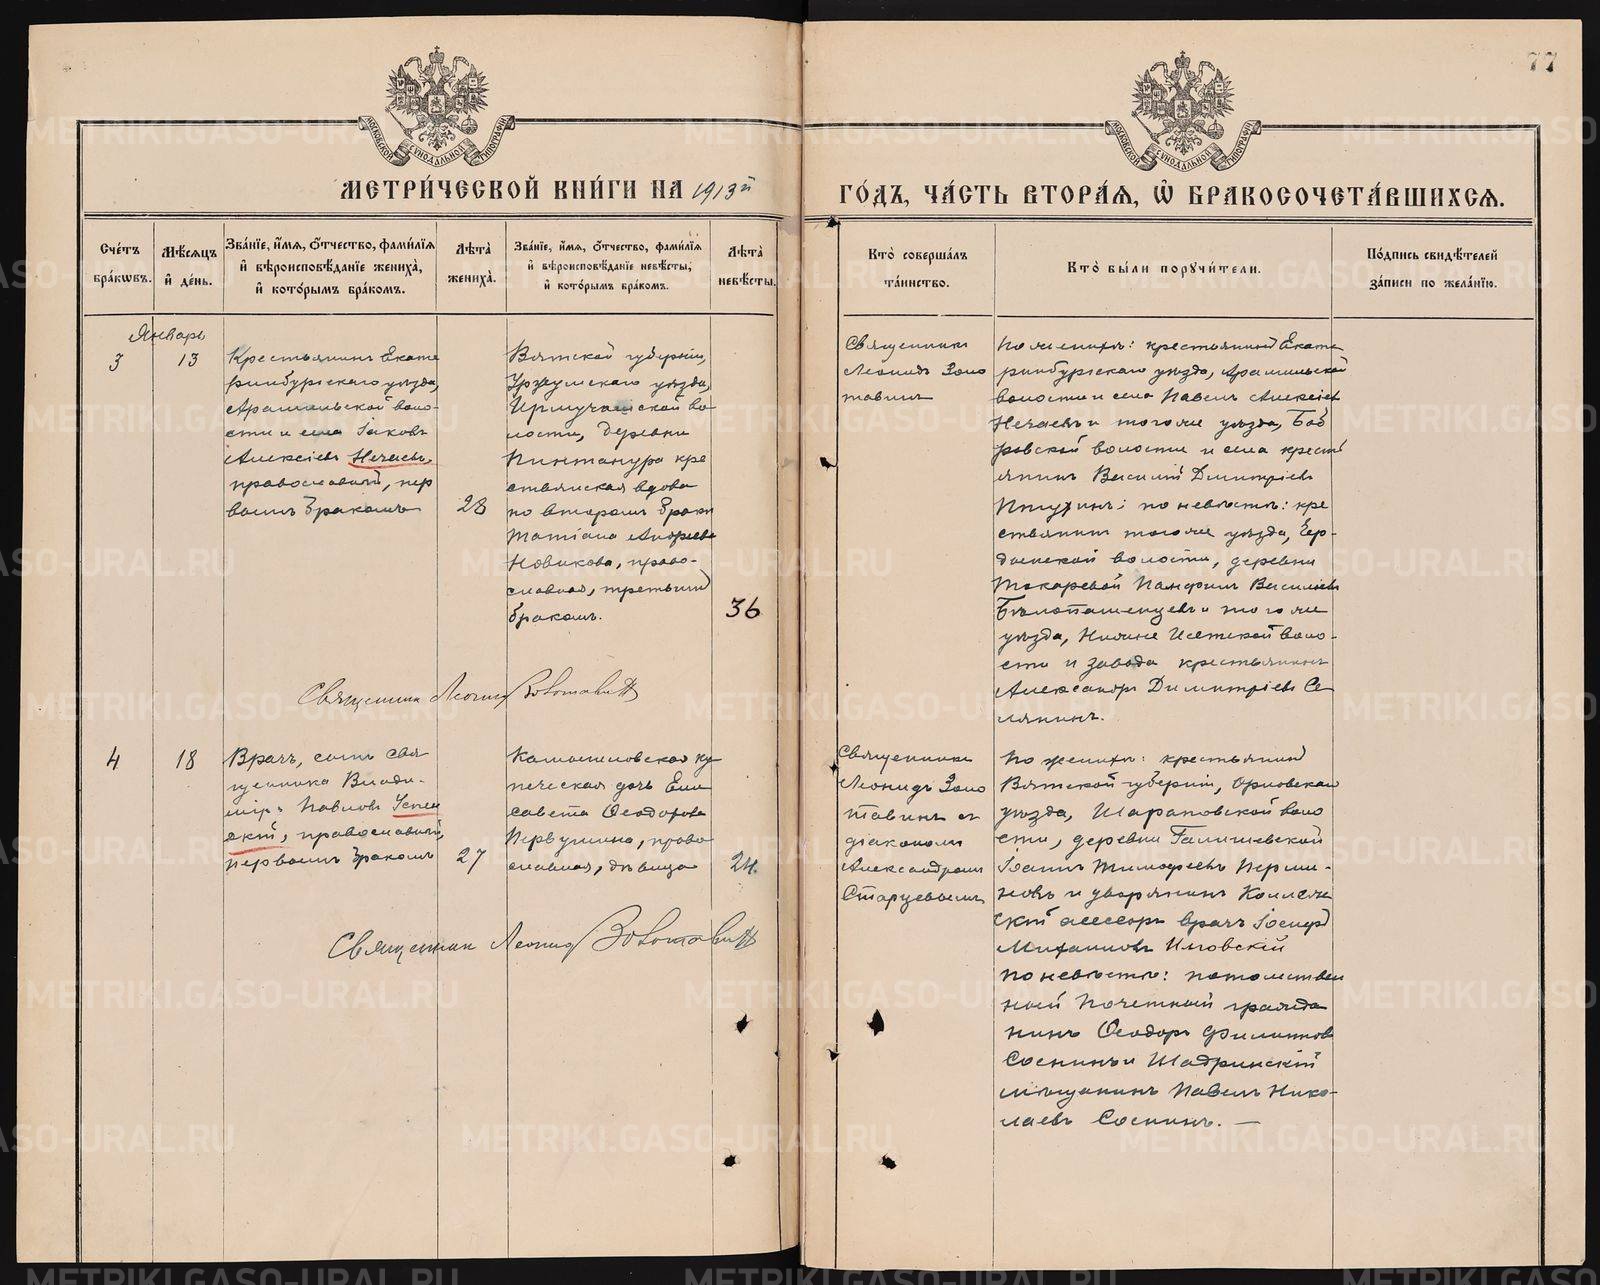 77
МОСКОВСКОЙ СѴНОДАЛЬНОЙ ТИПОГРАФІИ
МОСКОВСКОЙ СѴНОДАЛЬНОЙ ТИПОГРАФІИ
МЕТРИ́ЧЕСКОЙ КНИ́ГИ НА 1913й
ГО́ДЪ, ЧА́СТЬ ВТОРА́Я, Ѡ БРАКОСОЧЕТА́ВШИХСЯ.
Сче́тъ бра́кѡвъ.
Мѣ́сяцъ и҆ де́нь.
Зва́нїе, и҆́мя, ѻ҆́тчество, фами́лїя
и҆ вѣроисповѣ́данїе жениха̀,
и҆ кото́рымъ бра́комъ.
Лѣта̀ жениха̀.
Зва́нїе, и҆́мя, ѻ҆́тчество, фами́лїя
и҆ вѣроисповѣ́данїе невѣ́сты,
и҆ кото́рымъ бра́комъ.
Лѣта̀ невѣ́сты.
Кто̀ соверша́лъ
та́инство.
Кто̀ бы́ли порꙋчи́тели.
По́дпись свидѣ́телей
за́писи по жела́нїю.
Январь
3
13
Крестьянинъ Екате
ринбургскаго уѣзда,
Арамильской воло-
сти и села Іаковъ
Алексіевъ Нечаевъ,
православный, пер
вымъ бракомъ
28
Вятской губерніи,
Уржумскаго уѣзда,
во
лости, деревни
кре
стьянская вдова
по второмъ бракѣ
Татіана Андреева
Новикова, право-
славная, третьимъ
бракомъ.
36
Священникъ
Леонидъ Золо
тавинъ
По женихѣ: крестьянинъ Екате
ринбургскаго уѣзда, Арамильской
волости и села Павелъ Алексіевъ
Нечаевъ и того же уѣзда, Боб
ровской волости и села кресть
янинъ Василій Димитріевъ
по невѣстѣ: кре
стьянинъ того же уѣзда,
волости, деревни
Токаревой Панфилъ Васильевъ
и того же
уѣзда, Нижне Исетской воло-
сти и завода крестьянинъ
Александръ Димитріевъ Се
лянинъ.
Священник Леонид Золотавин
4
18
Врачъ, сынъ свя
щенника Влади-
міръ Павловъ Успен
скій, православный,
первымъ бракомъ
27
Камышловская ку
печеская дочь Ели
савета Ѳеодорова
Первушина, право
славная, дѣвица
24.
Священникъ
Леонидъ Золо
тавинъ съ
діакономъ
Александромъ
Старцевымъ
По женихѣ: крестьянинъ
Вятской губерніи, Орловскаго
уѣзда, Шараповской воло
сти, деревни
Іоаннъ Тимофеевъ Перми-
новъ и дворянинъ Коллеж
скій ассесоръ врачъ Іосифъ
Михаиловъ
по невѣстѣ: потомствен
ный почетный гражда
нинъ Ѳеодоръ Филиппов
Соснинъ и Шадринскій
мѣщанинъ Павелъ Нико-
лаевъ Соснинъ. —
Священник Леонид Золотавин
METRIKI.GASO-URAL.RU